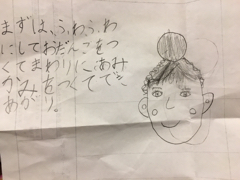 まずは、ふわふわ
にしておだんごをつ
くてまわりに、あみ
かみをつくてでき
あがり。